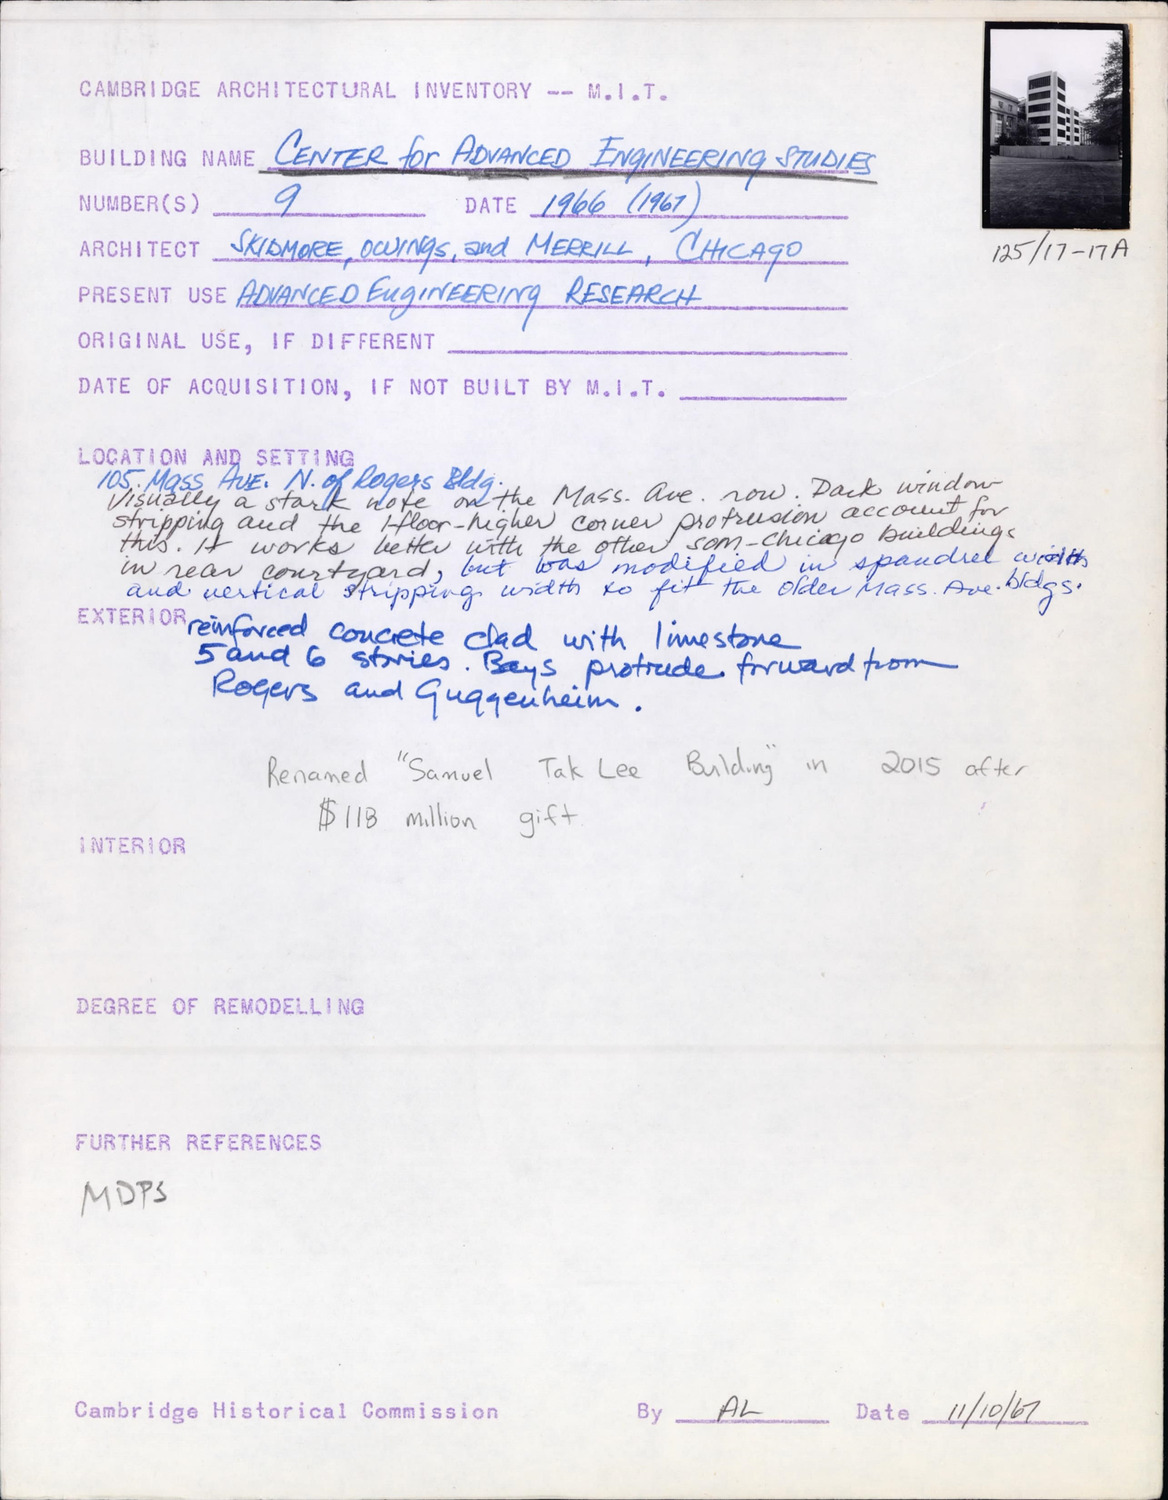 CAMBRIDGE ARCHITECTURAL INVENTORY -- M.I.T.
BUILDING NAME CENTER for ADVANCED ENGINEERING STUDIES
NUMBER(S) 9 DATE 1966 (1967)
125/17-17A
ARCHITECT SKIDMORE, OWINGS, and MERRILL, CHICAGO
PRESENT USE ADVANCED ENGINEERING RESEARCH
ORIGINAL USE, IF DIFFERENT
DATE OF ACQUISITION, IF NOT BUILT BY M.I.T.
LOCATION AND SETTING
105 Mass Ave. N. of Rogers Bldg.
Visually a stark note on the Mass. Ave. row. Dark window
stripping and the 1-floor-higher corner protrusion account for
this. It works better with the other SOM-Chicago buildings
in rear courtyard, but was modified in spandrel width
and vertical stripping width to fit the older Mass. Ave. bldgs.
EXTERIOR reinforced concrete clad with limestone
5 and 6 stories. Bays protrude forward from
Rogers and Guggenheim.
Renamed "Samuel Tak Lee Building" in 2015 after
$118 million gift
INTERIOR
DEGREE OF REMODELLING
FURTHER REFERENCES
MDPS
Cambridge Historical Commission By AL Date 11/10/67